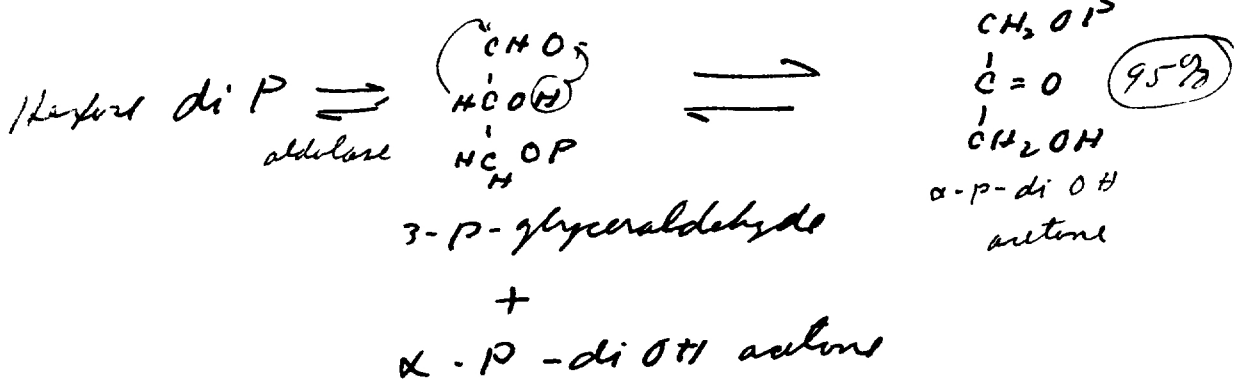 Hexose di P ⇌ aldolase
CHO
HCOH
HCOP
H
3-P-glyceraldehyde
+
α-P-diOH acetone
⇌
CH₂OP
C=O
CH₂OH
95%
α-P-di OH
acetone